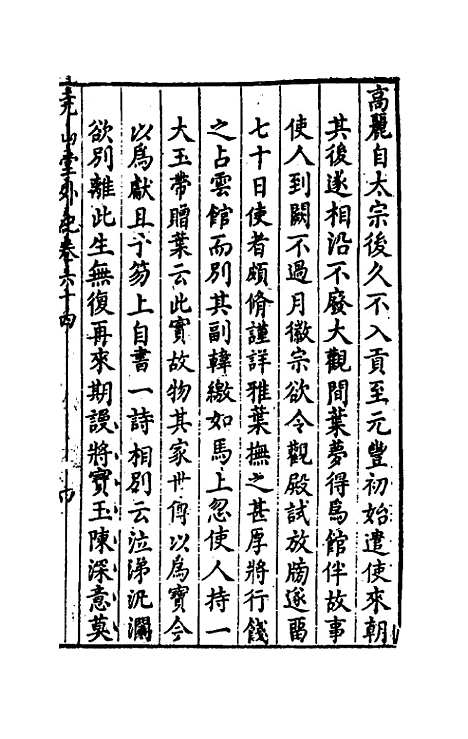 高麗自太宗後久不入貢至元豐初始遣使來朝
其後遂相沿不廢大觀間葉夢得爲館伴故事
使人到闕不過月徽宗欲令觀殿試放牓遂畱
七十日使者頗脩謹詳雅葉撫之甚厚將行餞
之占雲館而別其副韓繳如馬上忽使人持一
大玉帶贈葉云此實故物其家世傳以爲寶今
以爲獻且于笏上自書一詩相别云泣涕汍瀾
欲別離此生無復再來期謾將寶玉陳深意莫
堯山堂外紀卷六十四